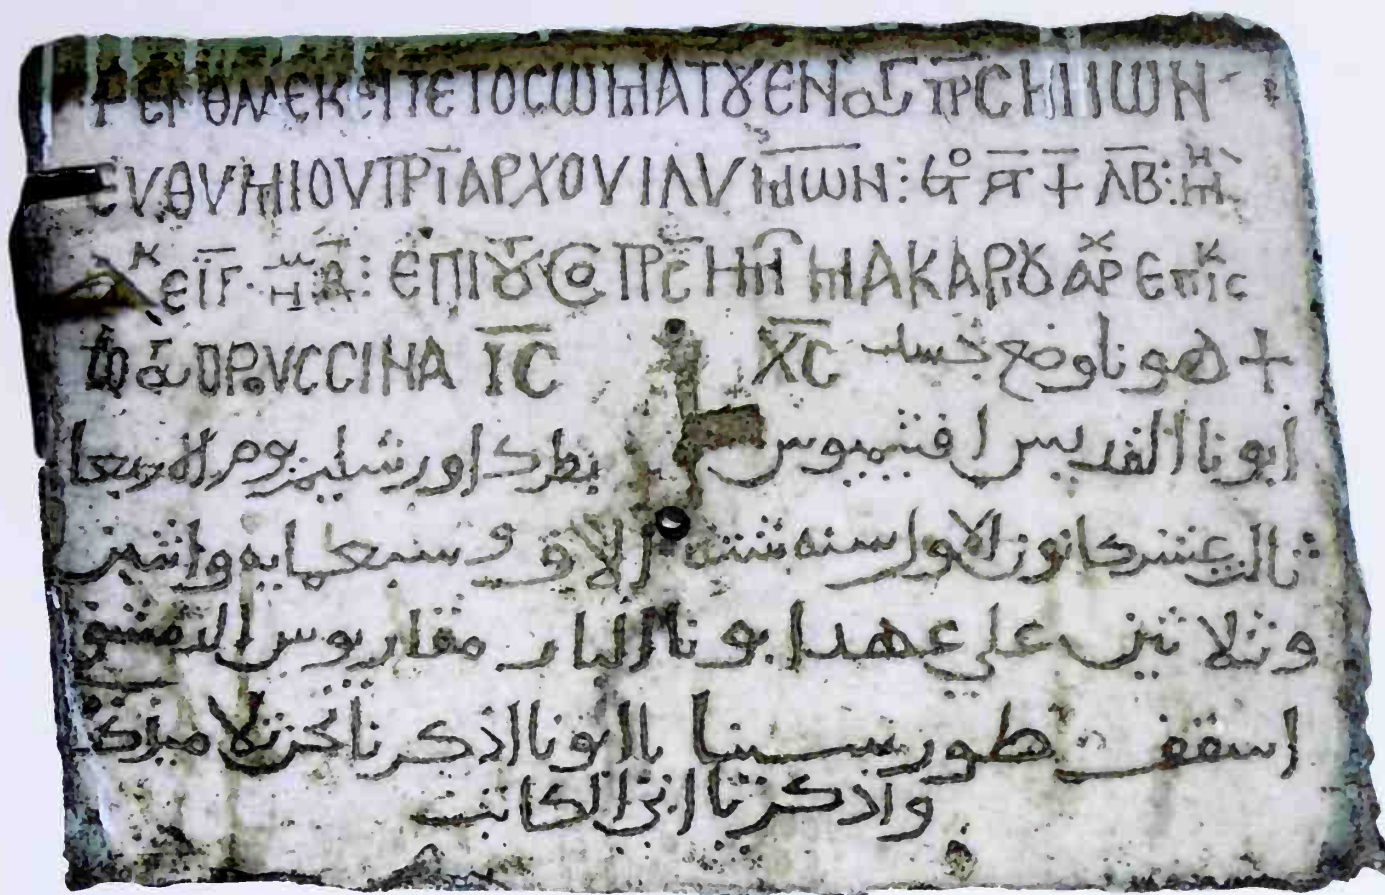 ΕΝΘΑΔΕ ΚΕΙΤΕ ΤΟ CΩΜΑ ΤȢ ΕΝ ΠΡC ΗΜΩΝ
ΕΥΘΥΜΙΟΥ ΠΡΙΑΡΧΟΥ ΙΛΥΜΩΝ : + ΛΒ :
ΕΙΓ : ΕΠΙ ΠΡC ΗΜ ΜΑΚΑΡΙȢ ΑΡΧ ΕΠΙCΚ
ΟΡΟΥC CΙΝΑ ΙC ΧC + هونا وضع جسد
ابونا القديس افتيميوس بطرك اورشليم يوم الاربعا
ثالث عشر كانون الاول سنه ستة الاف وسبعمايه واثنين
وثلاثين على عهد ابونا البار مقاريوس الدمشقي
اسقف طور سينا يا ابونا اذكرنا نحن تلاميذك
واذكرنا انى الكاتب